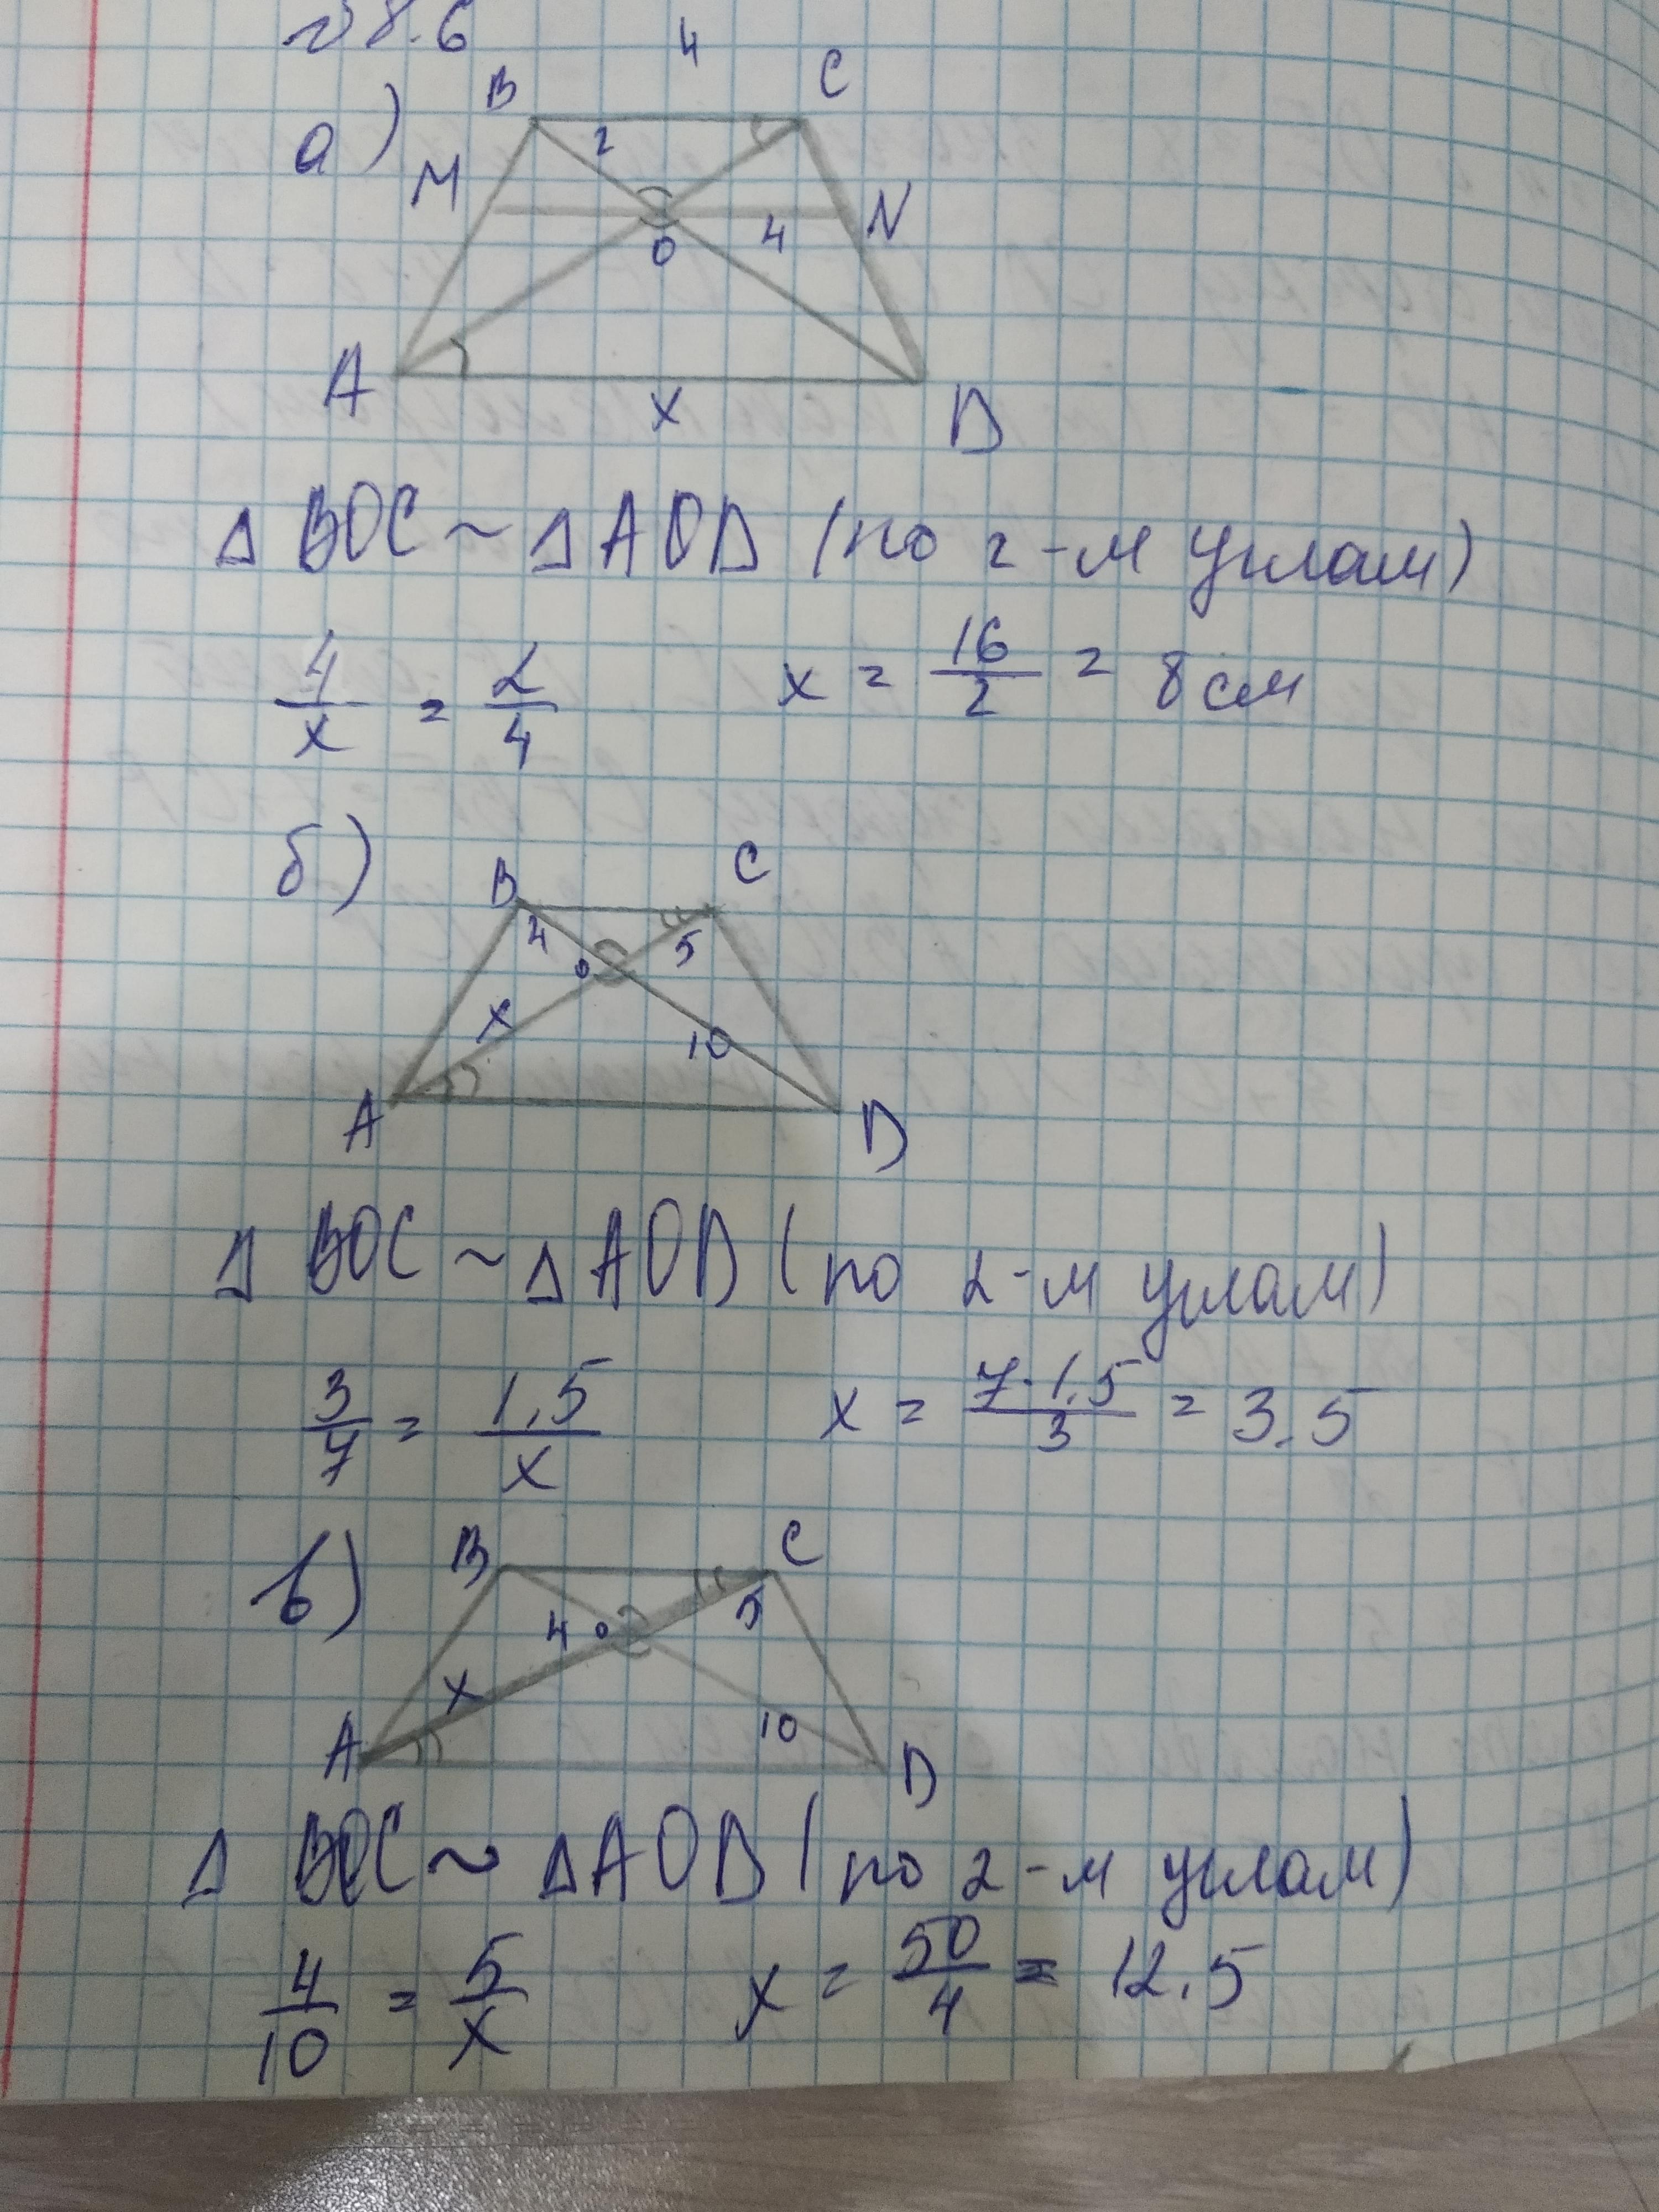 № 8.6
4
а) B C
2
M N
4
O
A x D
Δ BOC ~ Δ AOD (по 2-м углам)
4/x = 2/4 x = 16/2 = 8 см
б) B C
4 5
O
x 10
A D
Δ BOC ~ Δ AOD (по 2-м углам)
3/7 = 1.5/x x = 7·1.5/3 = 3.5
в) B C
4 O 5
x 10
A D
Δ BOC ~ Δ AOD (по 2-м углам)
4/10 = 5/x x = 50/4 = 12.5